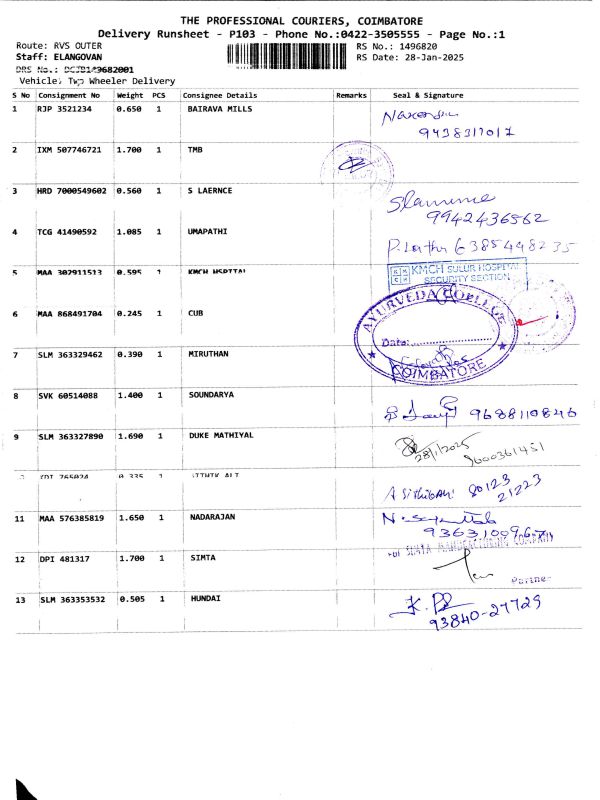 THE PROFESSIONAL COURIERS, COIMBATORE
Delivery Runsheet - P103 - Phone No.:0422-3505555 - Page No.:1
Route: RVS OUTER
RS No.: 1496820
Staff: ELANGOVAN
RS Date: 28-Jan-2025
DRS No.:
Vehicle: Two Wheeler Delivery
S No Consignment No Weight PCS Consignee Details Remarks Seal & Signature
1 RJP 3521234 0.650 1 BAIRAVA MILLS
2 IXM 507746721 1.700 1 TMB
3 HRD 7000549602 0.560 1 S LAERNCE
9942436562
4 TCG 41490592 1.085 1 UMAPATHI
6385448235
5 MAA 302911513 0.595 1 KMCH HSPITAL
KMCH SULUR HOSPITAL
SECURITY SECTION
6 MAA 868491704 0.245 1 CUB
AYURVEDA COLLEGE
Date:
COIMBATORE
7 SLM 363329462 0.390 1 MIRUTHAN
8 SVK 60514088 1.400 1 SOUNDARYA
9688110846
9 SLM 363327890 1.690 1 DUKE MATHIYAL
28/1/2025
9600361451
765024 0.335 1 SITHIK ALI
80123
21223
11 MAA 576385819 1.650 1 NADARAJAN
12 DPI 481317 1.700 1 SIMTA
Partner
13 SLM 363353532 0.505 1 HUNDAI
93840-27729